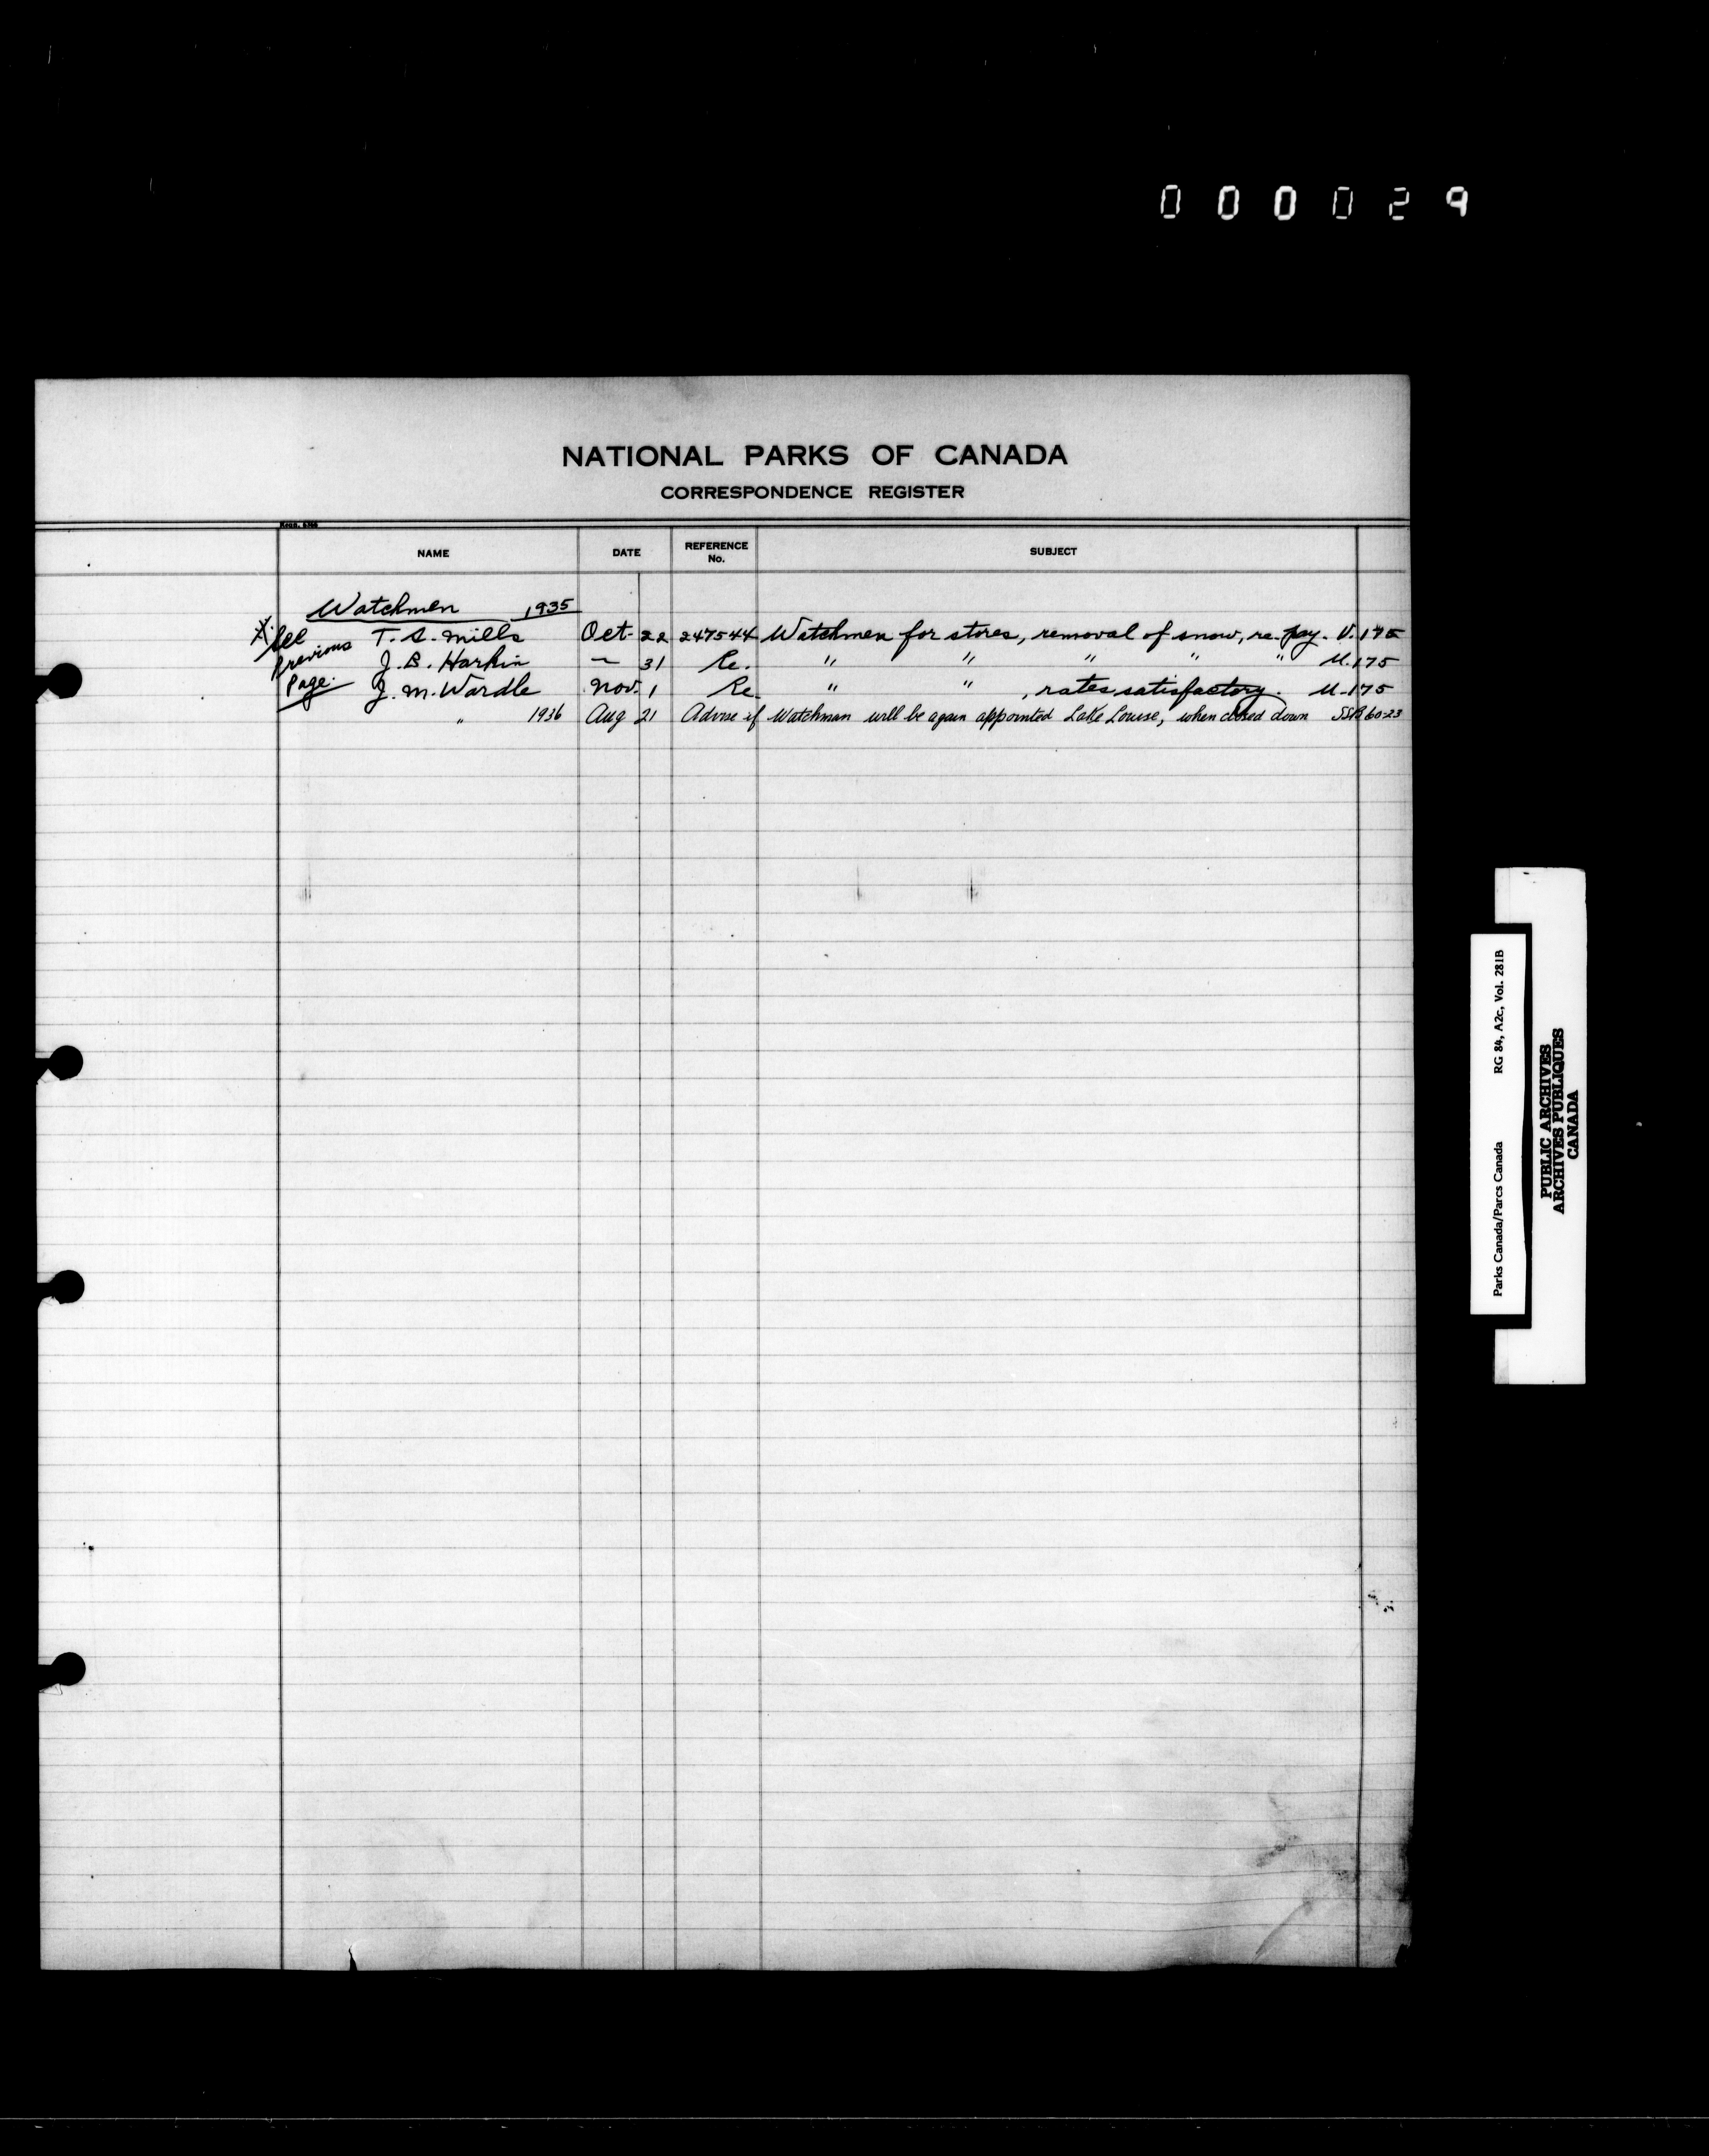 000029
NATIONAL PARKS OF CANADA
CORRESPONDENCE REGISTER
NAME DATE REFERENCE No. SUBJECT
Watchmen 1935
See Previous Page.
T. S. Mills Oct. 22 247544 Watchmen for stores, removal of snow, re. pay. U.175
J. B. Harkin — 31 Re. " " " " " U.175
J. M. Wardle Nov. 1 Re. " " , rates satisfactory. U-175
" 1936 Aug 21 Advise if Watchman will be again appointed Lake Louise, when closed down 60-23
Parks Canada/Parcs Canada RG 84, A2c, Vol. 281B
PUBLIC ARCHIVES
ARCHIVES PUBLIQUES
CANADA